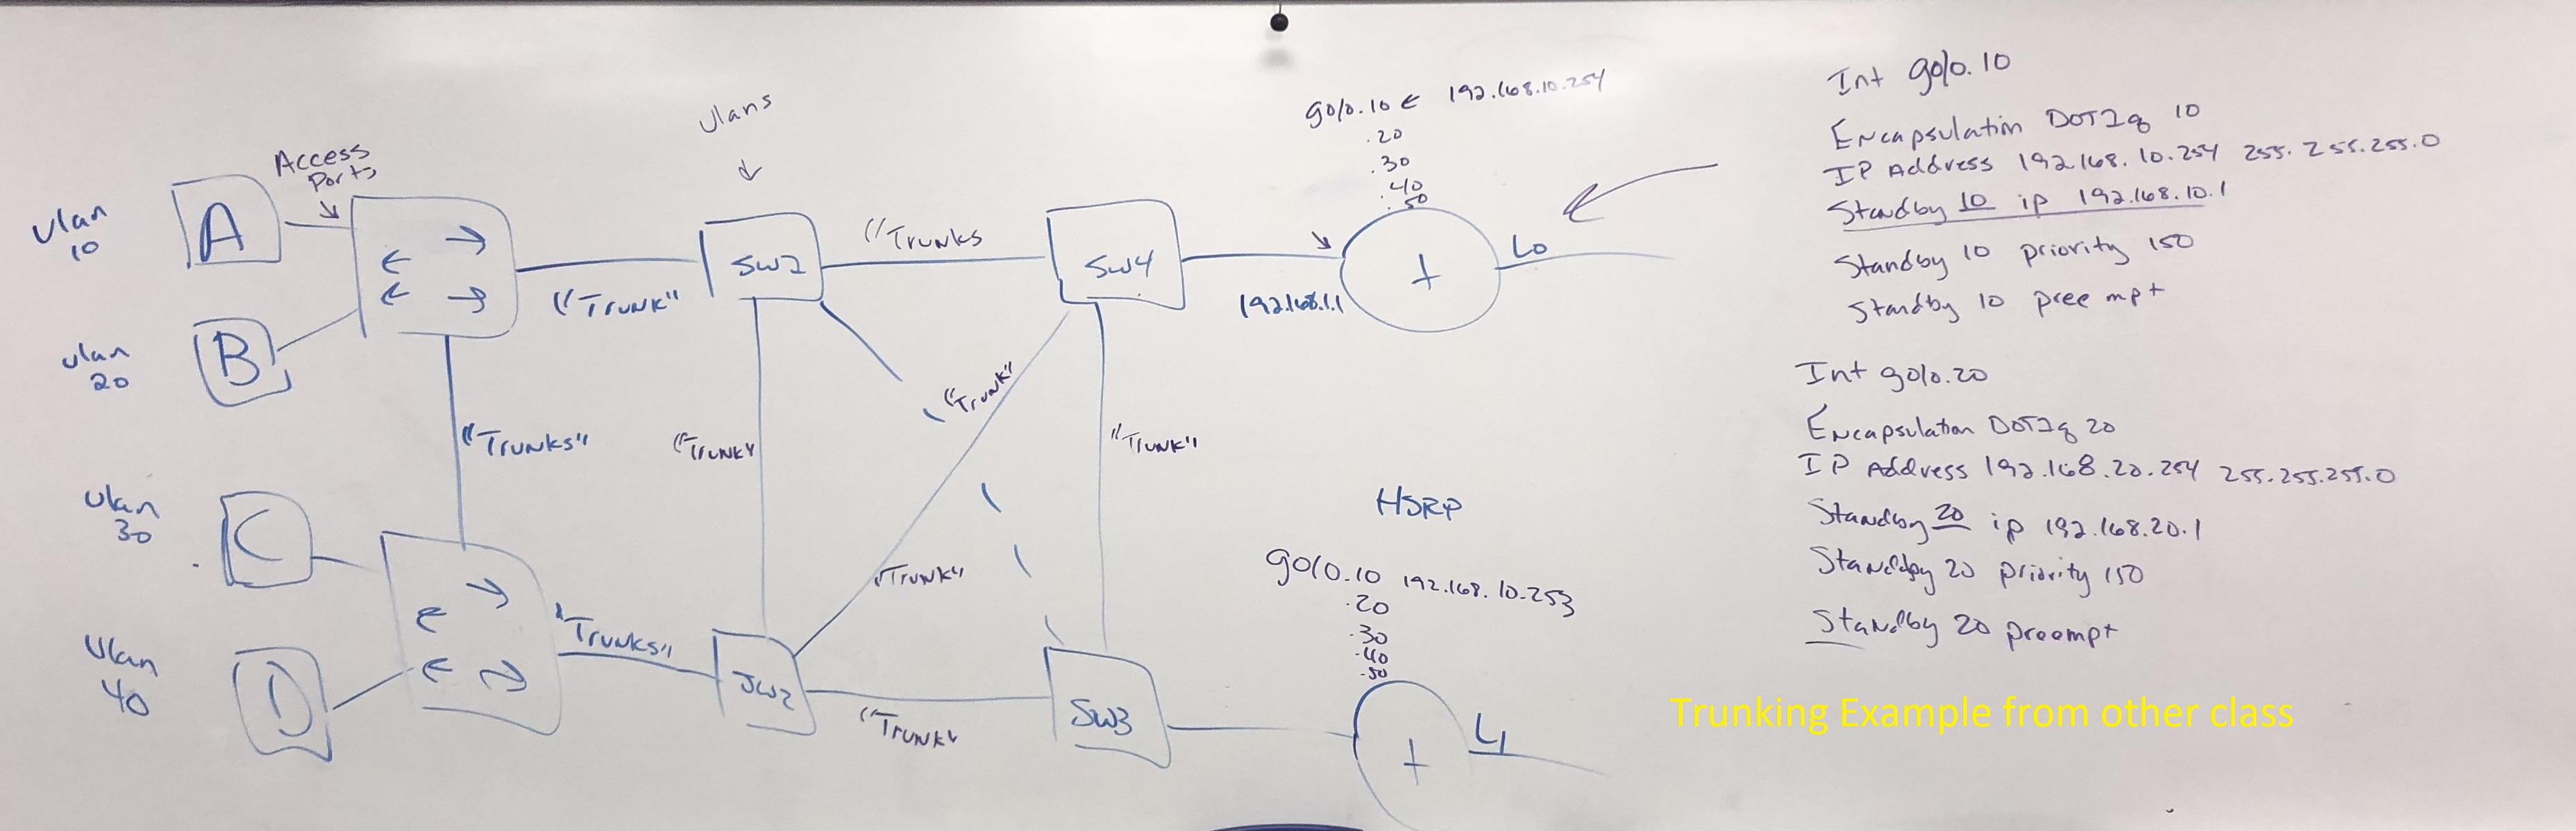 Vlan
10
A
Access
Ports
Vlan
20
B
"Trunk"
Vlans
SW2
"Trunks
SW4
192.168.1.1
g0/0.10 ← 192.168.10.254
.20
.30
.40
.50
L0
"Trunks"
"Trunk"
"Trunk"
"Trunk"
"Trunk"
Vlan
30
C
Vlan
40
D
"Trunks"
SW2
"Trunk"
SW3
HSRP
g0/0.10 192.168.10.253
.20
.30
.40
.50
L1
Int g0/0.10
Encapsulation DOT1q 10
IP Address 192.168.10.254 255.255.255.0
Standby 10 ip 192.168.10.1
Standby 10 priority 150
Standby 10 preempt
Int g0/0.20
Encapsulation DOT1q 20
IP Address 192.168.20.254 255.255.255.0
Standby 20 ip 192.168.20.1
Standby 20 priority 150
Standby 20 preempt
Trunking Example from other class